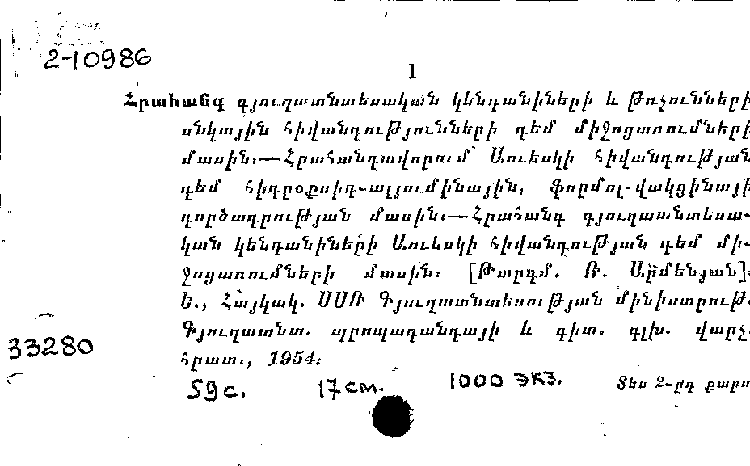 2-10986
1
Հրահանգ գյուղատնտեսական կենդանիների և թռչունների
սնկային հիվանդությունների դեմ միջոցառումների
մասին։—Հրահանգավորում Աուեսկի հիվանդության
դեմ հիդրօքսիդ-ալյումինային, ֆորմոլ-վակցինայի
գործադրության մասին։—Հրահանգ գյուղատնտեսա-
կան կենդանիների Աուեսկի հիվանդության դեմ մի-
ջոցառումների մասին։ [Թարգմ. Ռ. Արմենյան]։
Ե., Հայկակ. ՍՍՌ Գյուղատնտեսության մինիստրութ.
Գյուղատնտ. պրոպագանդայի և գիտ. գլխ. վարչ.
33280
հրատ., 1954։
59 с. 17 см. 1000 экз. Տես 2-րդ քարտ